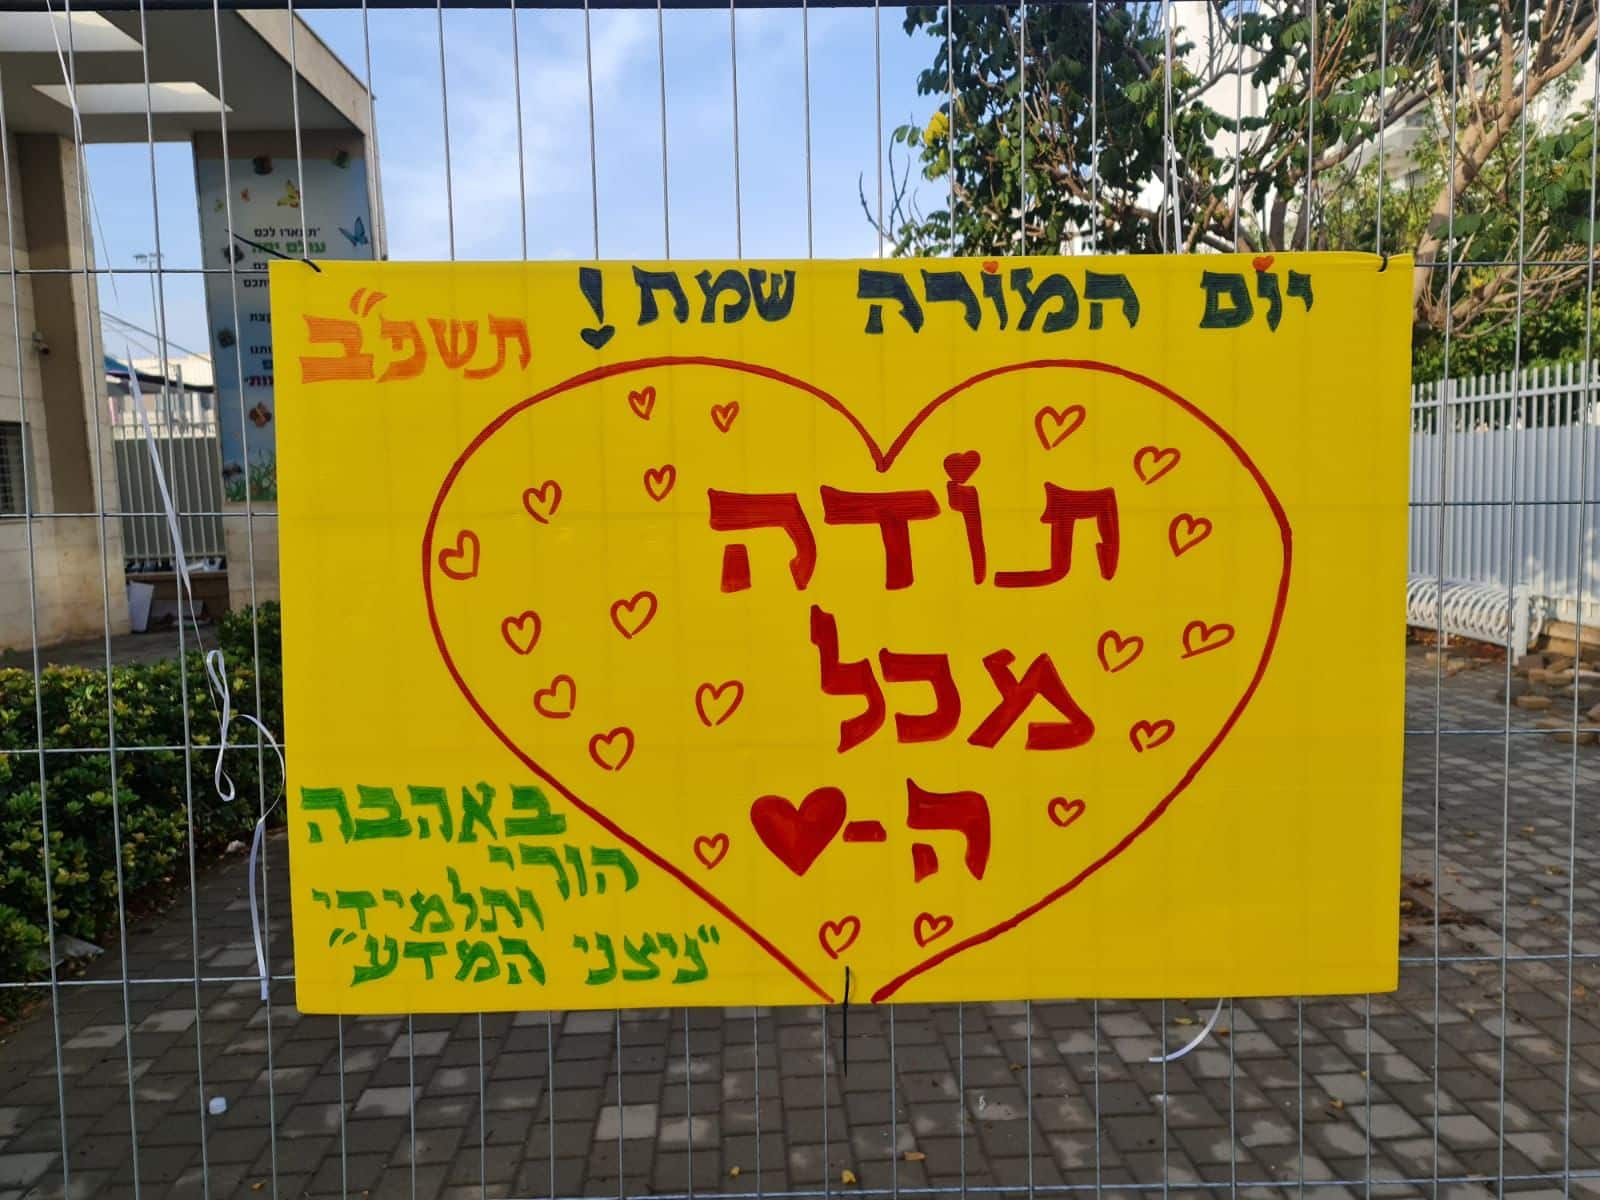 יום המורה שמח!
תשפ"ב
תודה
מכל
ה-
באהבה
הורי
ותלמידי
"ניצני המדע"
לכם
עולם יפה